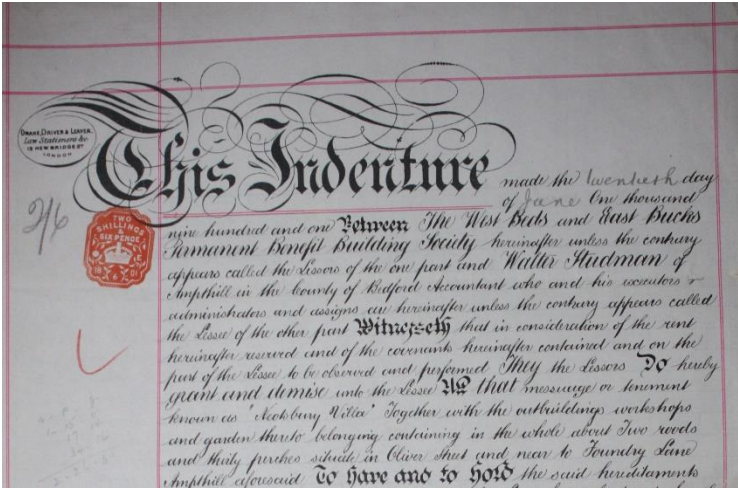 DRAKE, DRIVER & LEAVER,
Law Stationers &c
NEW BRIDGE ST
LONDON
This Indenture made the twentieth day
2/6
of June One thousand
TWO
SHILLINGS
&
SIX PENCE
nine hundred and one Between The West Beds and East Bucks
Permanent Benefit Building Society hereinafter unless the contrary
appears called the Lessors of the one part and Walter Studman of
Ampthill in the County of Bedford Accountant who and his executors &
administrators and assigns are hereinafter unless the contrary appears called
the Lessee of the other part Witnesseth that in consideration of the rent
hereinafter reserved and of the covenants hereinafter contained and on the
part of the Lessee to be observed and performed They the Lessors Do hereby
grant and demise unto the Lessee All that messuage or tenement
known as " Villa" Together with the outbuildings workshops
and garden thereto belonging containing in the whole about Two roods
and thirty perches situate in Oliver Street and near to Foundry Lane
Ampthill aforesaid To have and to hold the said hereditaments